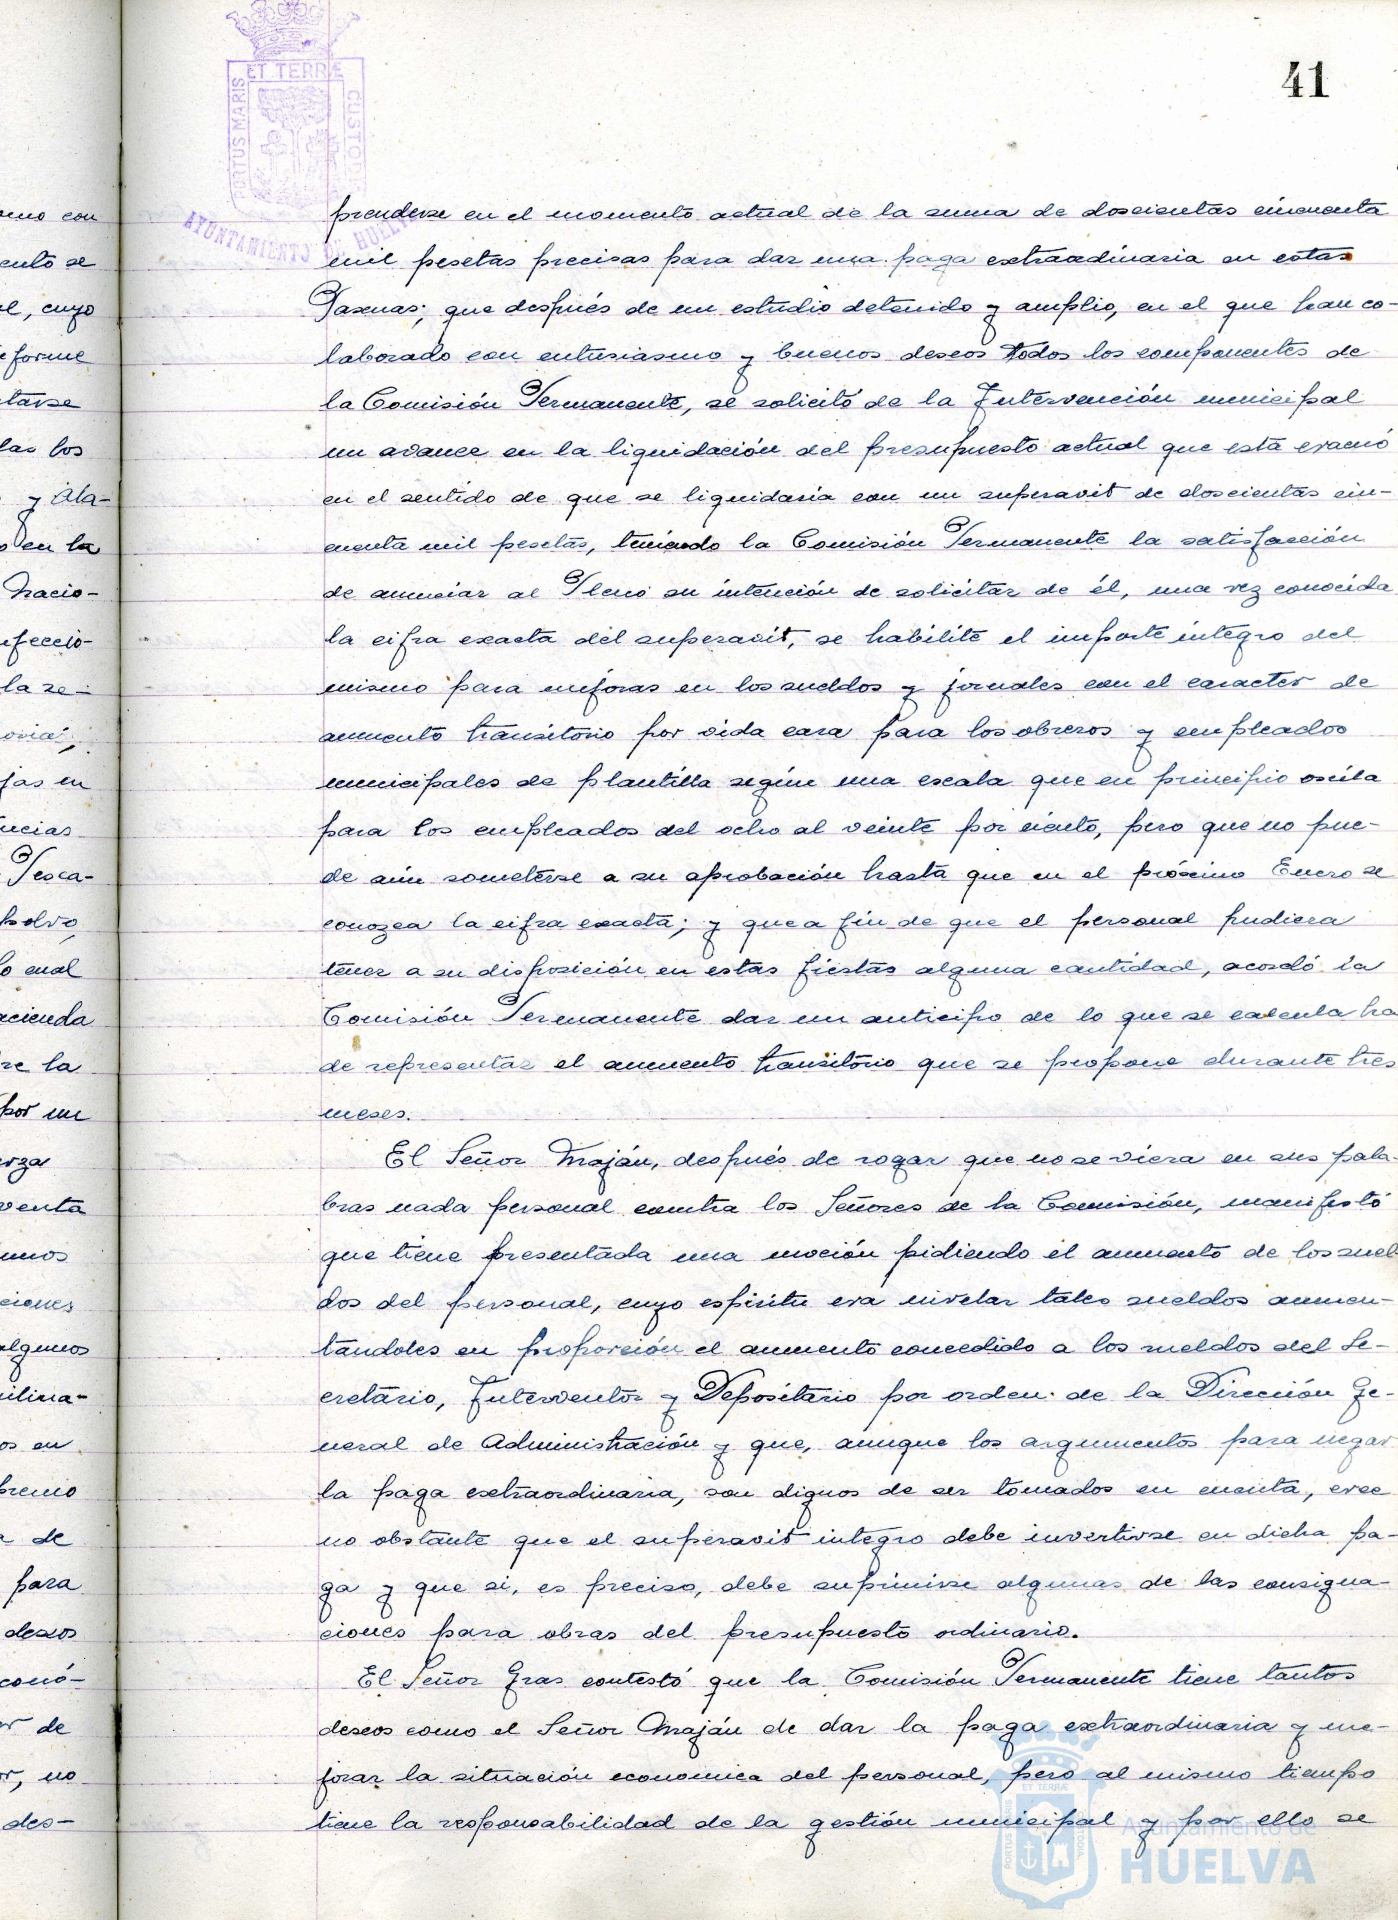 41
ET TERRÆ
PORTUS MARIS
CUSTODIA
AYUNTAMIENTO DE HUELVA
prenderse en el momento actual de la suma de doscientas cincuenta
mil pesetas precisas para dar una paga extraordinaria en estas
Pascuas; que después de un estudio detenido y amplio, en el que han co-
laborado con entusiasmo y buenos deseos todos los componentes de
la Comisión Permanente, se solicitó de la Intervención municipal
un avance en la liquidación del presupuesto actual que está evacuó
en el sentido de que se liquidaria con un superavit de doscientas cin-
cuenta mil pesetas, teniendo la Comisión Permanente la satisfacción
de anunciar al Pleno su intención de solicitar de él, una vez conocida
la cifra exacta del superavit, se habilite el importe integro del
mismo para mejoras en los sueldos y jornales con el caracter de
aumento transitorio por vida cara para los obreros y empleados
municipales de plantilla según una escala que en principio oscila
para los empleados del ocho al veinte por ciento, pero que no pue-
de aún someterse a su aprobación hasta que en el próximo Enero se
conozca la cifra exacta; y que a fin de que el personal pudiera
tener a su disposición en estas fiestas alguna cantidad, acordó la
Comisión Permanente dar un anticipo de lo que se calcula ha
de representar el aumento transitorio que se propone durante tres
meses.
El Señor Maján, después de rogar que no se viera en sus pala-
bras nada personal contra los Señores de la Comisión, manifestó
que tiene presentada una moción pidiendo el aumento de los suel-
dos del personal, cuyo espiritu era nivelar tales sueldos aumen-
tándoles en proporción el aumento concedido a los sueldos del Se-
cretario, Interventor y Depositario por orden de la Dirección Ge-
neral de Administración y que, aunque los argumentos para negar
la paga extraordinaria, son dignos de ser tomados en cuenta, cree
no obstante que el superavit integro debe invertirse en dicha pa-
ga y que si, es preciso, debe suprimirse algunas de las consigna-
ciones para obras del presupuesto ordinario.
El Señor Gras contestó que la Comisión Permanente tiene tantos
deseos como el Señor Maján de dar la paga extraordinaria y me-
jorar la situación economica del personal, pero al mismo tiempo
tiene la responsabilidad de la gestión municipal y por ello se
Ayuntamiento de
HUELVA